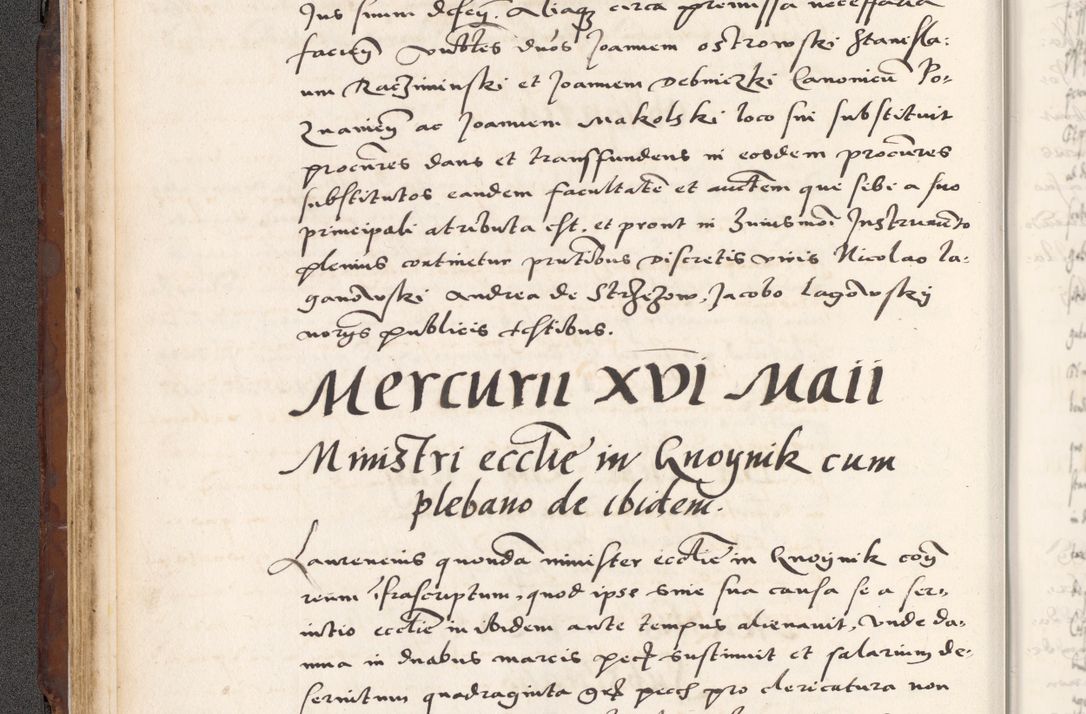 Jus suum defeñ. Aliaq circa premissa necessaria
facieñ vulttes duos Joannem ostrowski Stanisla:
um Raczimiński et Joannem Debniczki Canonicū Po-
znanieñ ac Joannem Makolski loco sui substituit
procūres dans et transffundens in eosdem procūres
substitutos eandem facultatē et auctem que sibi a suo
principali atributa est. et prout in Huiusmoi Instrumēto
plenius continetur pntibus Discretis viris Nicolao La-
ganowski Andrea de Strzezow, Jacobo Lagowski
norijs publicis testibus.
Mercurii xvi Maii
Ministri ecctie in Gnoynik cum
plebano de ibidem.
Laurencius quondā minister ecctie in Gnoynik coñ
reum ifrascriptum, quod ipse sine sua causa se a ser-
uitio ecctie in ibidem ante tempus alienauit, Unde da-
mna in duabus marcis pecf sustinuit et salarium de-
seruitum quadraginta gr pecf pro clericatura non